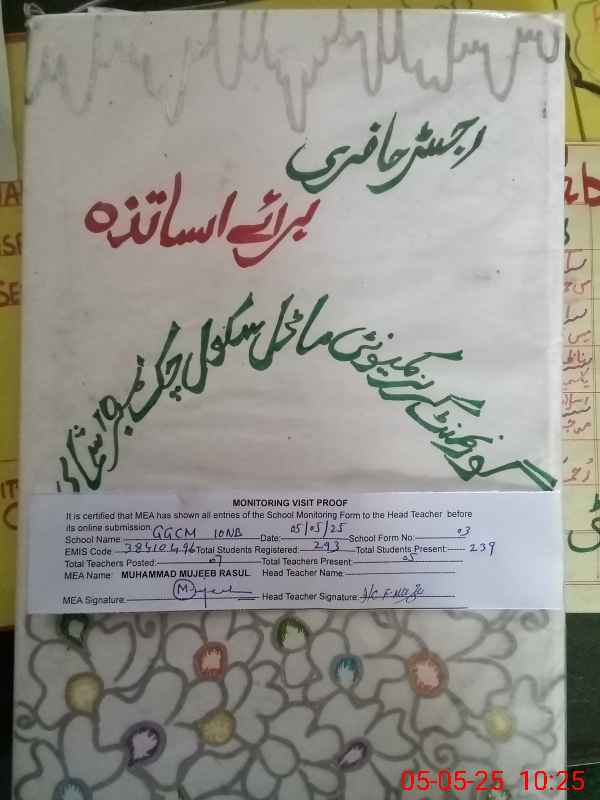 رجسٹر حاضری
برائے اساتذہ
گورنمنٹ گرلز کمیونٹی ماڈل سکول چک نمبر 10 شمالی
MONITORING VISIT PROOF
It is certified that MEA has shown all entries of the School Monitoring Form to the Head Teacher before
its online submission.
School Name: GGCM 10NB Date: 05/05/25 School Form No: 03
EMIS Code 38410496 Total Students Registered: 293 Total Students Present: 239
Total Teachers Posted: 07 Total Teachers Present: 05
MEA Name: MUHAMMAD MUJEEB RASUL Head Teacher Name:
MEA Signature: Head Teacher Signature:
05-05-25 10:25